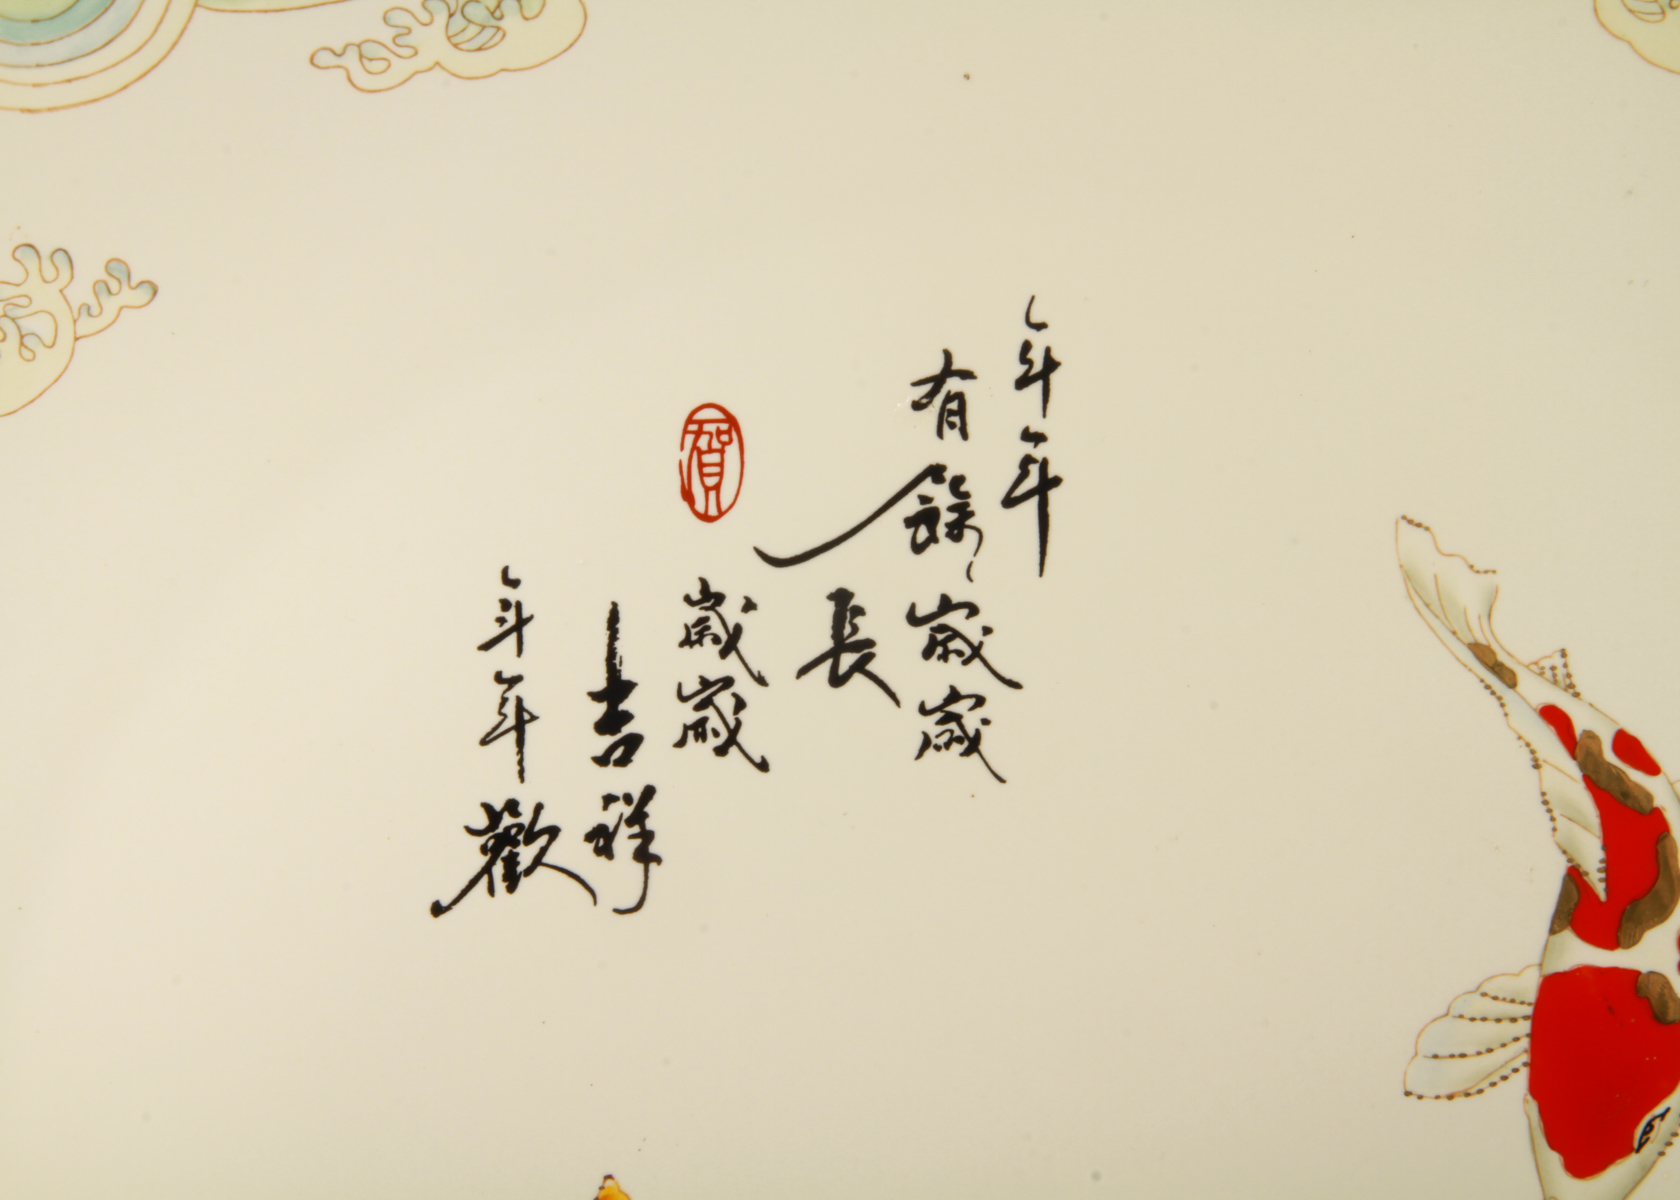 年年
有餘歲歲
長
賀
歲歲
吉祥
年年歡